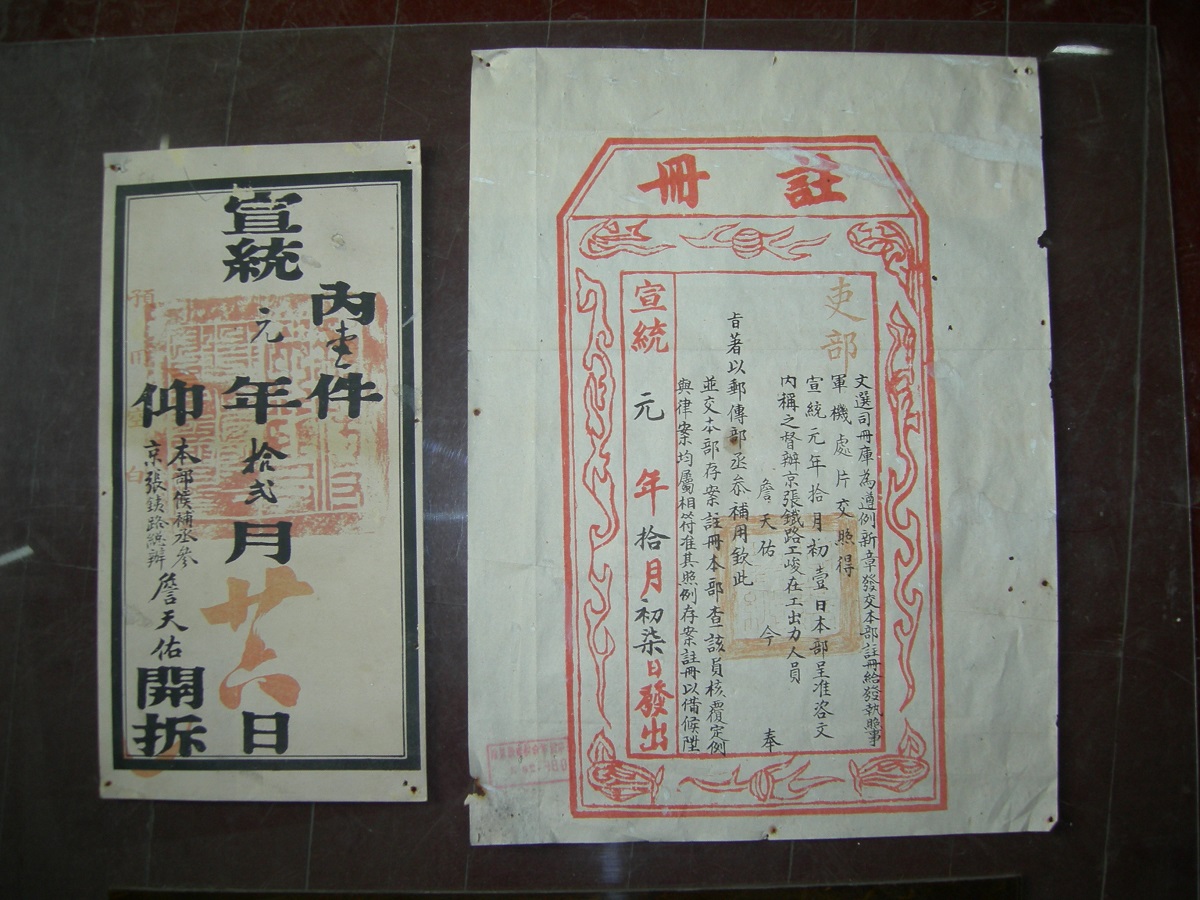 內壹件
宣統元年拾弍月廿六日
仰本部候補丞參
京張鉄路総辦
詹天佑開拆
註冊
吏部
文選司冊庫為遵例新章發交本部註冊給發執照事
軍機處片交照得
宣統元年拾月初壹日本部呈准咨文
內稱之督辦京張鐵路工峻在工出力人員
詹天佑今奉
旨著以郵傳部丞叅補用欽此
並交本部存案註冊本部查該員核覆定例
與律案均屬相符准其照例存案註冊以俻候陞
宣統元年拾月初柒日發出